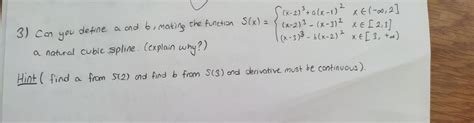 3) Can you define a and b, making the function S(x) = { (x-2)³ + a(x-1)² x ∈ (-∞, 2]
(x-2)³ - (x-3)² x ∈ [2, 3]
(x-3)³ - b(x-2)² x ∈ [3, +∞)
a natural cubic spline. (explain why?)
Hint ( find a from S(2) and find b from S(3) and derivative must be continuous).